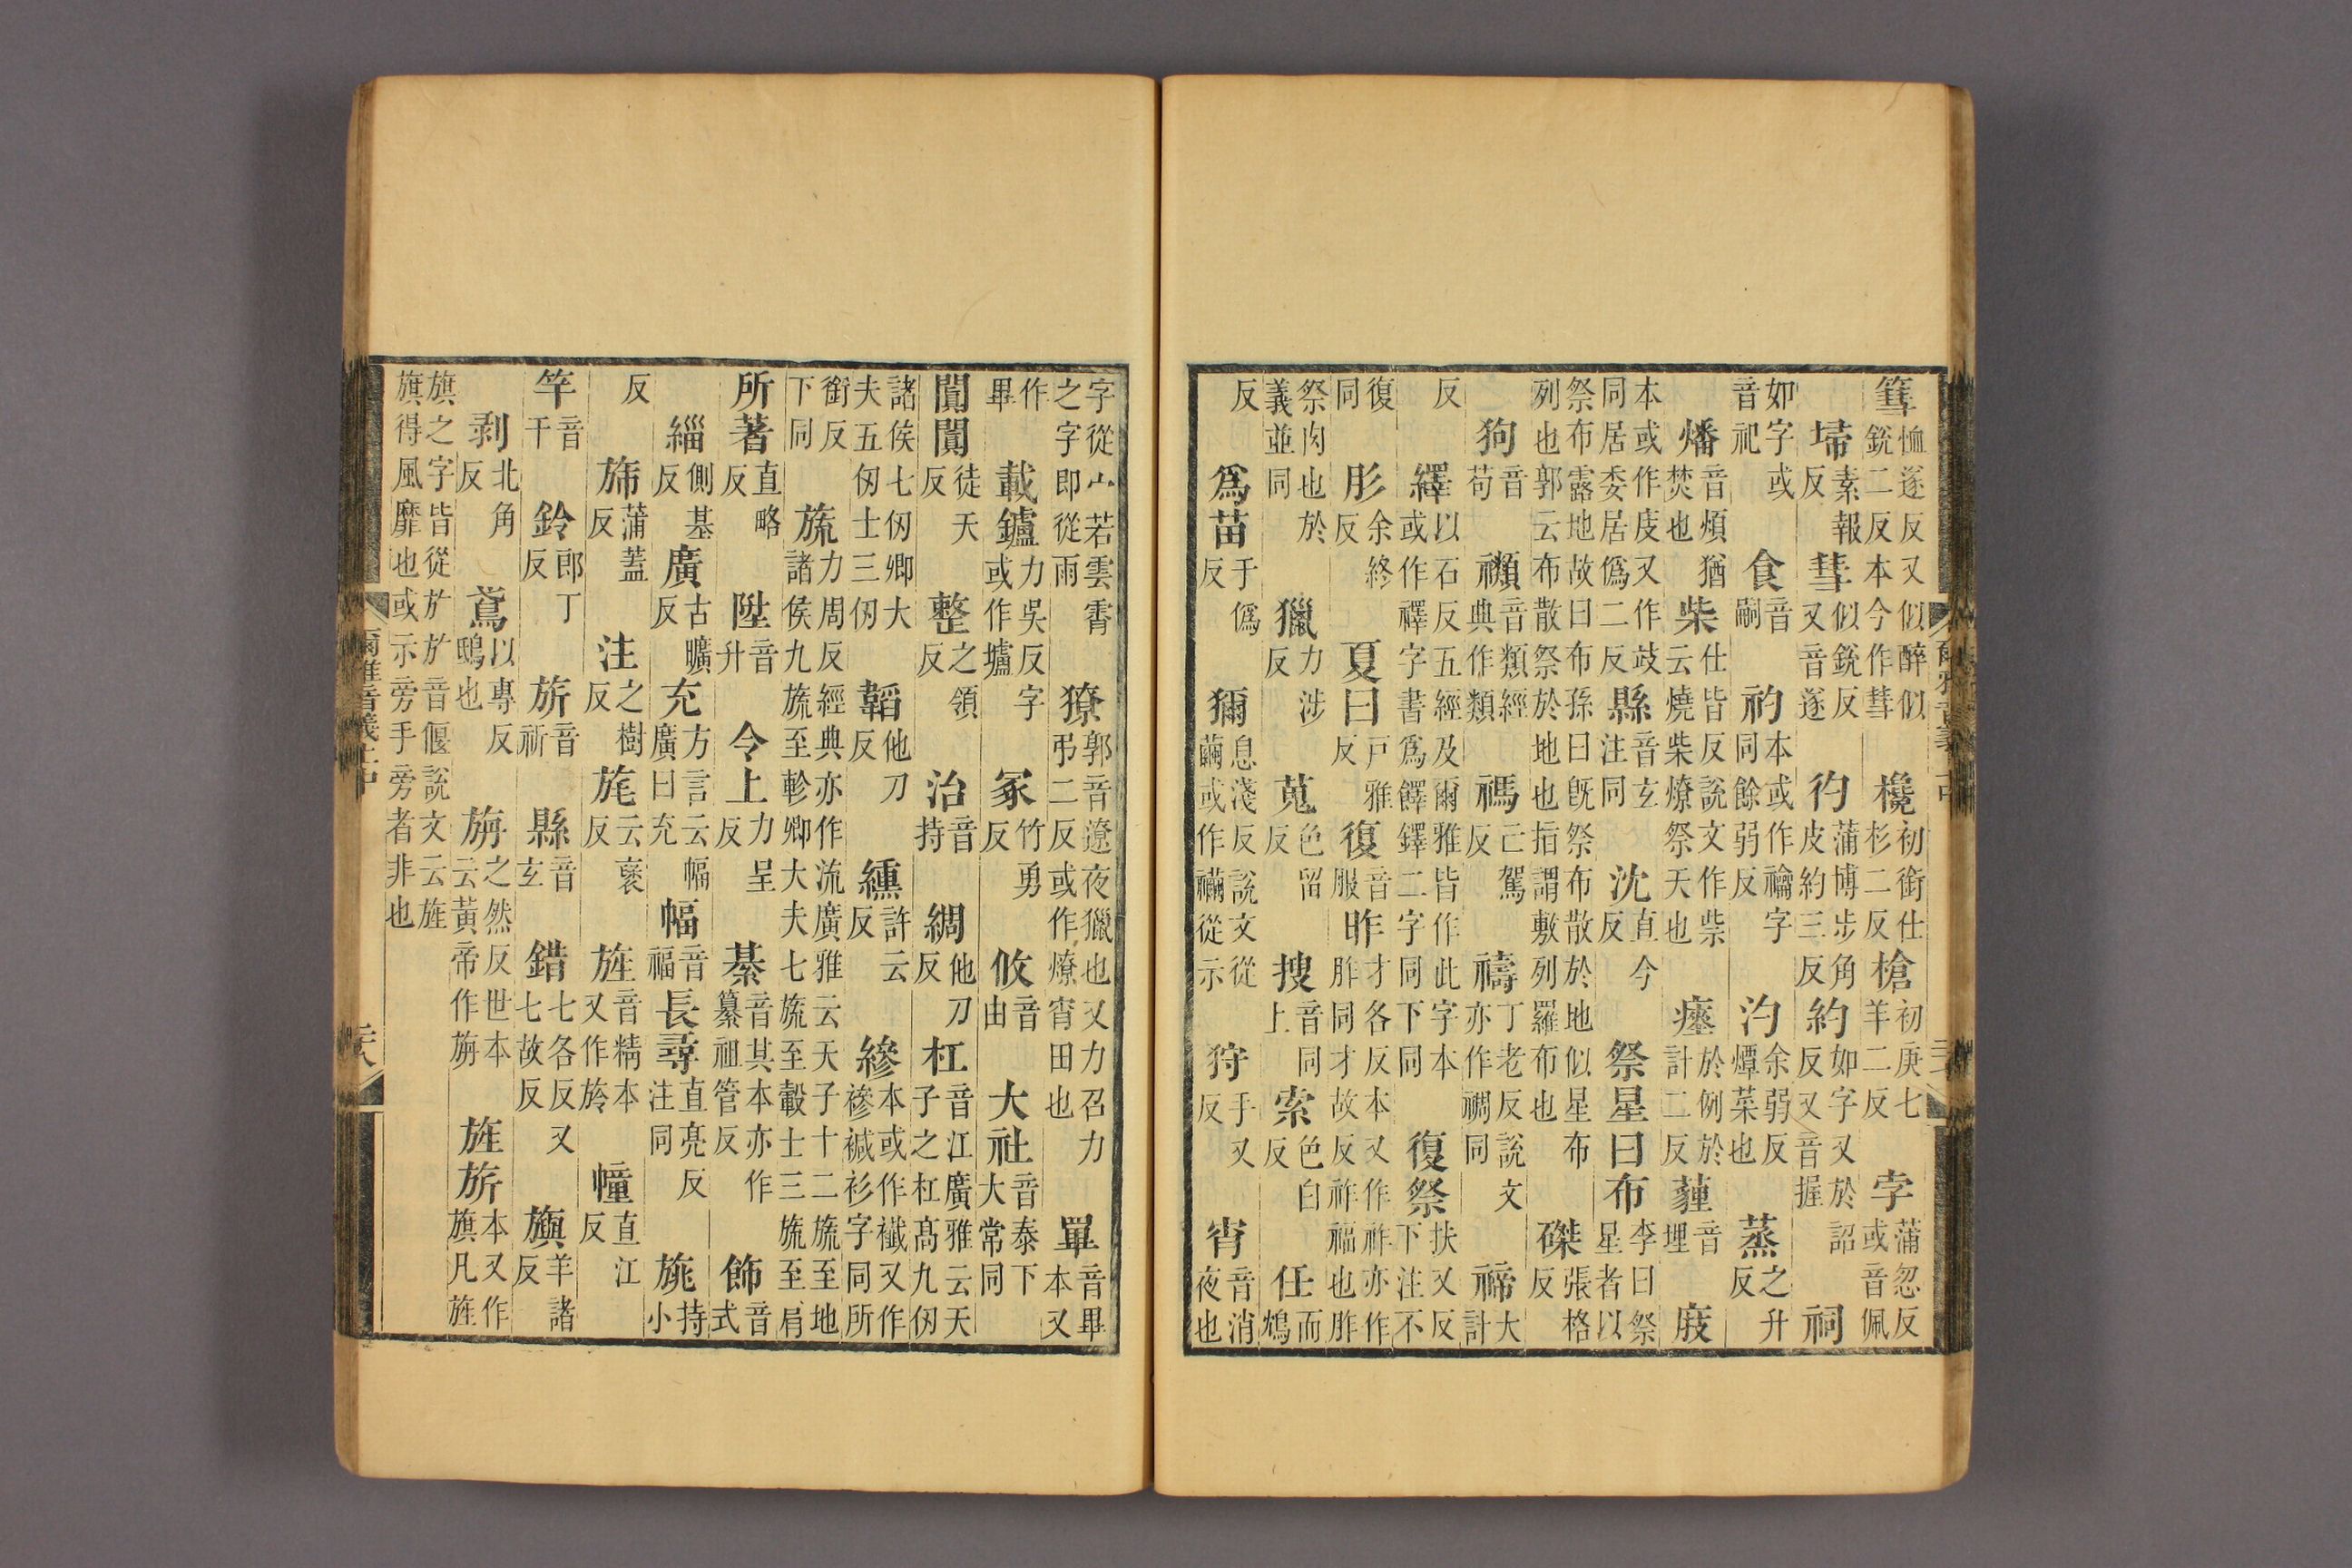 篲恤遂反又似醉似銳二反本今作彗欃初銜仕杉二反槍初庚七羊二反孛蒲忽反或音佩
埽素報反彗似銳反又音遂彴蒲博步角皮約三反約如字又於詔反又音握祠
如字或音祀食音嗣礿本或作禴字同餘弱反汋余弱反燂菜也蒸之升反
燔音煩猶焚也柴仕皆反說文作祡云燒柴燎祭天也瘞於例於計二反薶音埋庪
本或作庋又作攱同居委居僞二反縣音玄注同沈直今反祭星曰布李曰祭星者以
祭布露地故曰布孫曰旣祭布散於地似星布列也郭云布散祭於地也指謂敷列羅布也磔張格反
狗音苟禷音類經典作類禡亡駕反禱丁老反說文亦作禂同禘大計
反繹以石反五經及爾雅皆作此字本或作襗字書爲鐸二字同下同復祭扶又反下注不
復同肜余終反夏曰戶雅反復音服昨才各反本又作祚亦作胙同才故反祚福也胙
祭肉也於義並同獵力涉反蒐色留反搜音同上索色白反任而鴆
反爲苗于僞反獮息淺反說文從繭或作䙳從示狩手又反宵音消夜也
爾雅音義上中
字從宀若雲霄之字即從雨獠郭音遼夜獵也又力召力弔二反或作燎宵田也罼音畢本又
作畢載鑪力吳反字或作壚冢竹勇反攸音由大社音泰下大常同
闐闐徒天反整之領反治音持綢他刀反杠音江廣雅云天子之杠高九仞
諸侯七仞卿大夫五仞士三仞韜他刀反纁許云反縿本或作襳又作襂祴衫字同所
銜反下同旒力周反經典亦作流廣雅云天子十二旒至地諸侯九旒至軫卿大夫七旒至轂士三旒至肩
所著直略反陞音升令上力呈反綦音其本亦作纂祖管反飾音式
緇側基反廣古曠反充方言云幅廣曰充幅音福長尋直亮反注同旐持小
反旆蒲蓋反注之樹反旄云袤反旌音精本又作旍幢直江反
竿音干鈴郎丁反旂音祈縣音玄錯七各反又七故反旟羊諸反
剥北角反鳶以專反鴟也旃之然反世本云黃帝作旃旌旂本又作旗凡旌
旗之字皆從㫃㫃音偃說文云旌旗得風靡也或示旁手旁者非也
爾雅音義上中